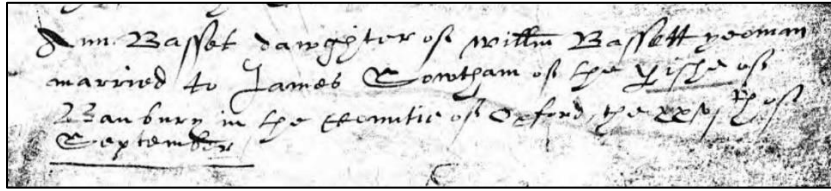 Ann Basset dawghter of Willm Bassett yeoman
married to James Sowtham of the pishe of
Banbury in the Countie of Oxford, the of
September